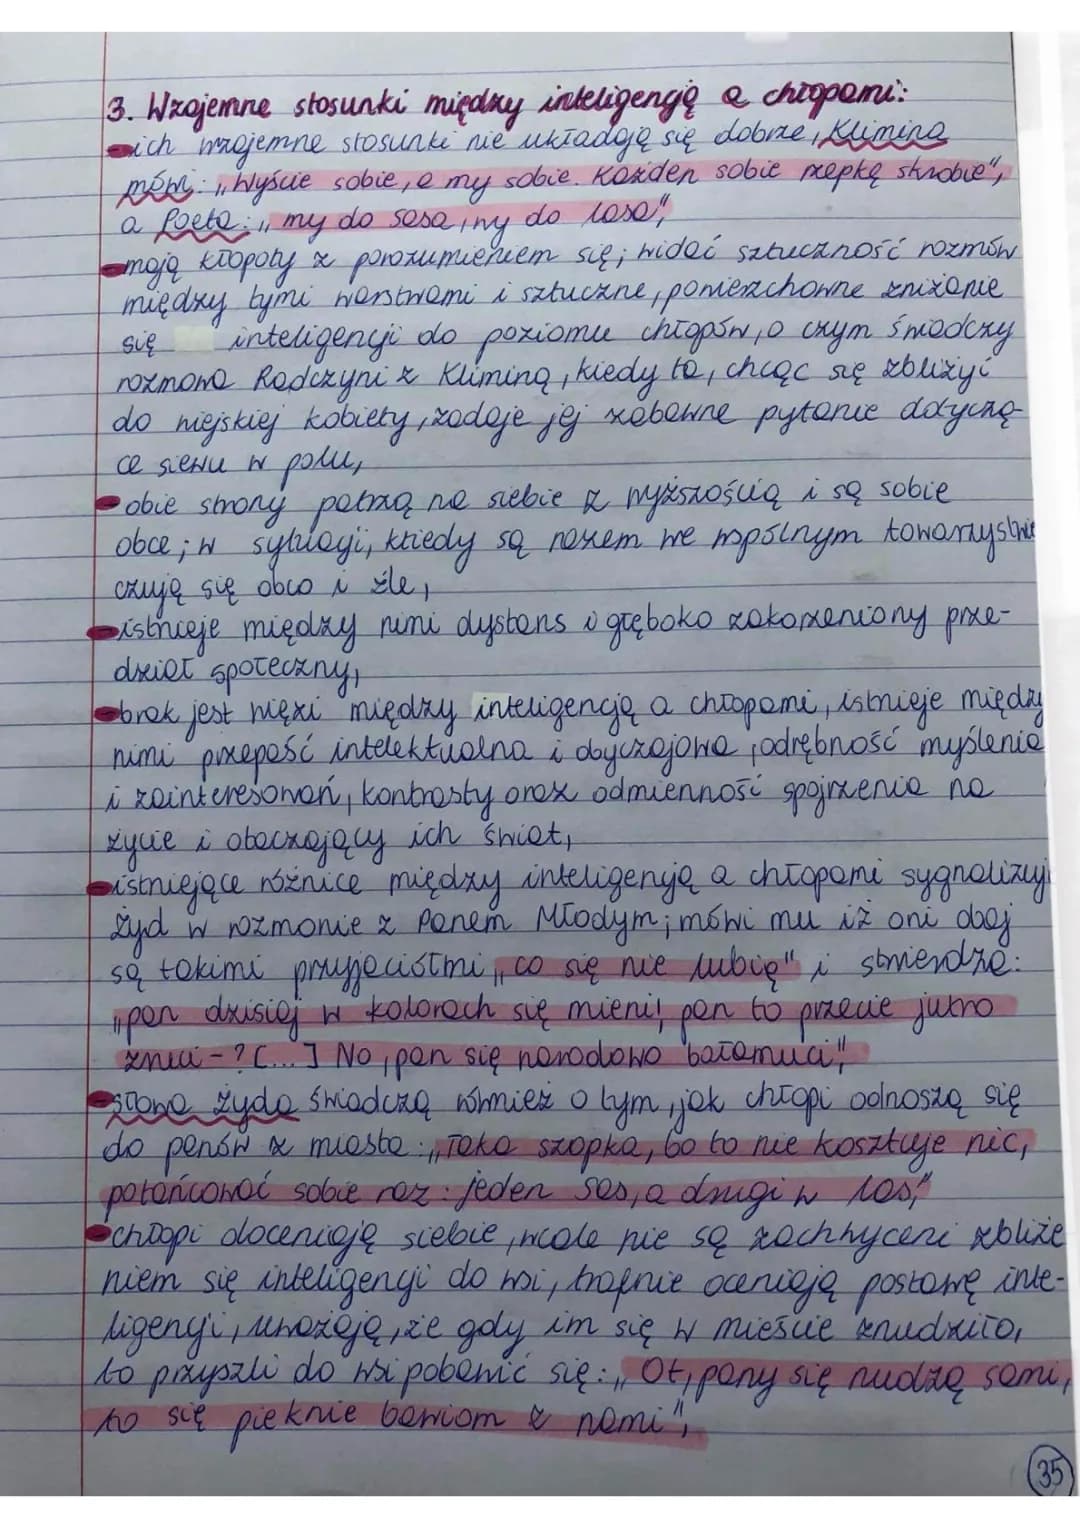 3. Wzajemne stosunki między inteligencją a chłopami:
ich wzajemne stosunki nie układają się dobrze, Klimina
mówi: „Wyście sobie, a my sobie. Każden sobie rzepkę skrobie",
a Poeta: „my do Sasa, wy do lasa",
mają kłopoty z porozumieniem się; widać sztuczność rozmów
między tymi warstwami i sztuczne, powierzchowne zniżanie
się inteligencji do poziomu chłopów, o czym świadczy
rozmowa Radczyni z Kliminą, kiedy ta, chcąc się zbliżyć
do wiejskiej kobiety, zadaje jej zabawne pytanie dotyczą-
ce siewu w polu,
obie strony patrzą na siebie z wyższością i są sobie
obce; w sytuacji, kiedy są razem we wspólnym towarzystwie
czują się obco i źle,
istnieje między nimi dystans i głęboko zakorzeniony prze-
dział społeczny,
brak jest więzi między inteligencją a chłopami, istnieje między
nimi przepaść intelektualna i obyczajowa, odrębność myślenia
i zainteresowań, kontrasty oraz odmienność spojrzenia na
życie i otaczający ich świat,
istniejące różnice między inteligencją a chłopami sygnalizuj
Żyd w rozmowie z Panem Młodym; mówi mu iż oni obaj
są takimi przyjaciółmi „co się nie lubią" i stwierdza:
„pan dzisiaj w kolorach się mieni, pan to przecie jutro
zruci - ? [...] No, pan się narodowo bałamuci",
słowa Żyda świadczą również o tym, jak chłopi odnoszą się
do panów z miasta: „Taka szopka, bo to nie kosztuje nic,
potańcować sobie raz: jeden Sas, a drugi w las",
chłopi doceniają siebie, wcale nie są zachwyceni zbliże
niem się inteligencji do wsi, trafnie oceniają postawę inte-
ligencji, uważają, że gdy im się w mieście znudziło,
to przyszli do wsi pobawić się: „Ot, pany się nudzą sami,
to się pieknie bawiom z nami",
35